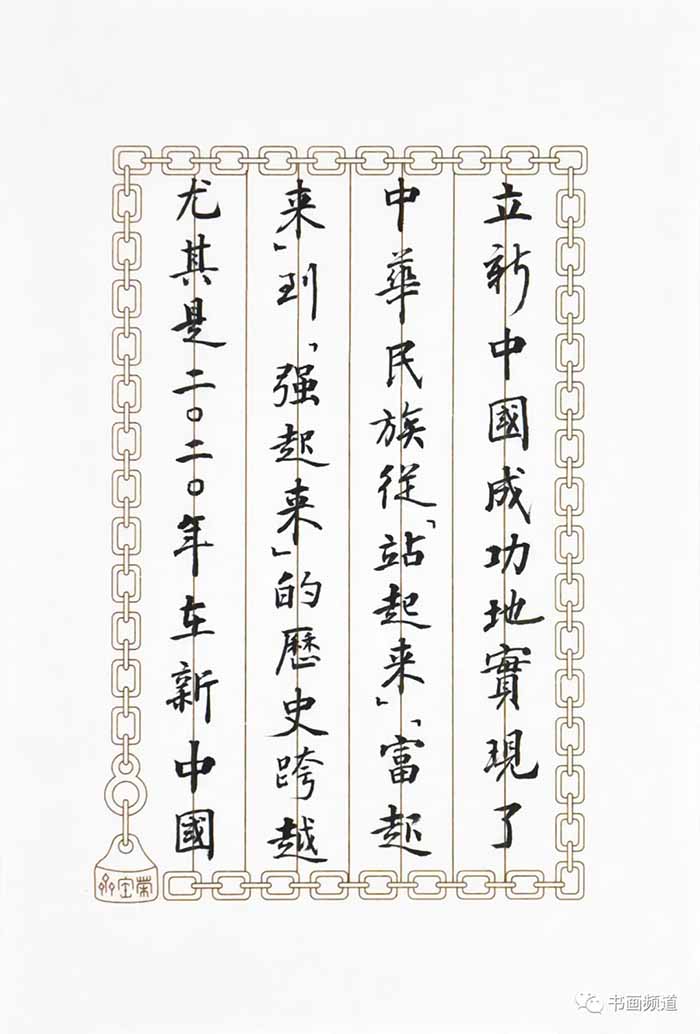 立新中國成功地實現了
中華民族從「站起来」「富起
来」到「强起来」的歷史跨越
尤其是二〇二〇年在新中國
榮宝齋
书画频道